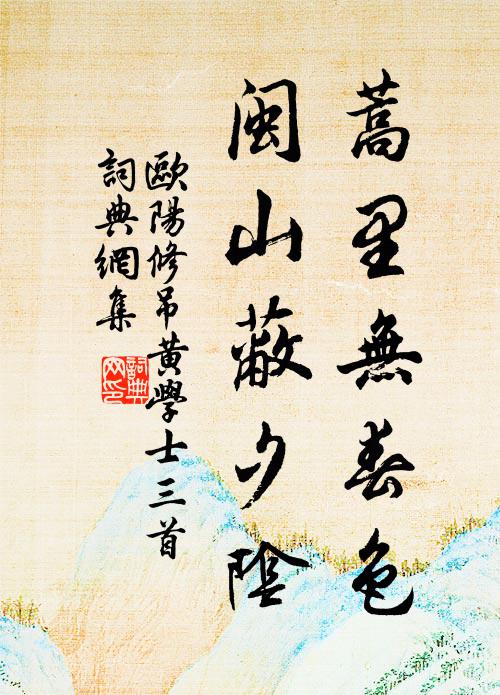 蒿里無春色
閩山蔽夕陰
歐陽修吊黃學士三首
詞典網集
詞典網印